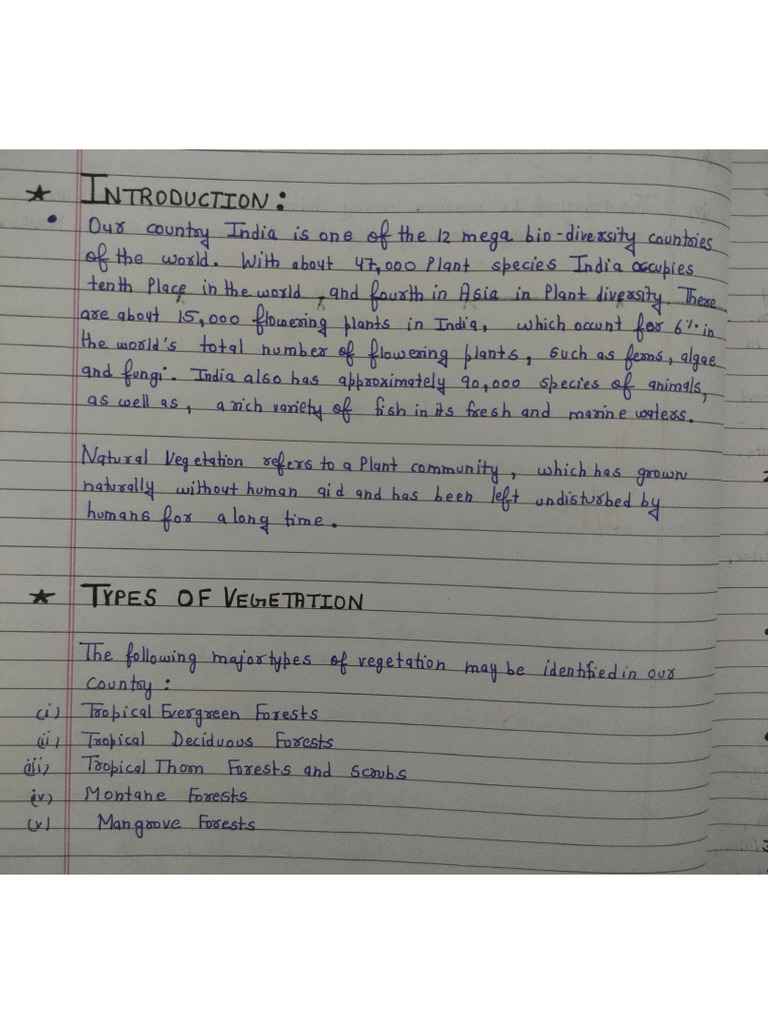 ★ INTRODUCTION:
• Our country India is one of the 12 mega bio-diversity countries
of the world. With about 47,000 Plant species India occupies
tenth Place in the world, and fourth in Asia in Plant diversity. There
are about 15,000 flowering plants in India, which accunt for 6% in
the world's total number of flowering plants, such as ferns, algae
and fungi. India also has approximately 90,000 species of animals,
as well as, a rich variety of fish in its fresh and marine waters.
Natural Vegetation refers to a Plant community, which has grown
naturally without human aid and has been left undisturbed by
humans for a long time.
★ TYPES OF VEGETATION
The following major types of vegetation may be identified in our
country:
(i) Tropical Evergreen Forests
(ii) Tropical Deciduous Forests
(iii) Tropical Thorn Forests and Scrubs
(iv) Montane Forests
(v) Mangrove Forests